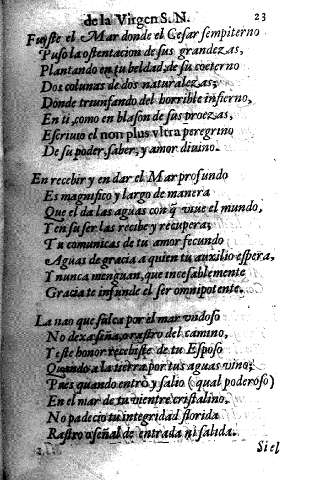 de la Virgen S. N. 23
Fuyste el Mar donde el Cesar sempiterno
Puso la ostentacion de sus grandezas,
Plantando en tu beldad, de su coeterno
Dos colunas de dos naturalezas;
Donde triunfando del horrible infierno,
En ti, como en blason de sus proezas,
Escriuio el non plus vltra peregrino
De su poder, saber, y amor diuino.
En recebir y en dar el Mar profundo
Es magnifico y largo de manera
Que el da las aguas con q̃ viue el mundo,
Y en su ser las recibe y recupera;
Tu comunicas de tu amor fecundo
Aguas de gracia a quien tu auxilio espera,
Y nunca menguan, que incesablemente
Gracia te infunde el ser omnipotente.
La nao que sulca por el mar vndoso
No dexa seña, o rastro del camino,
Y este honor recebiste de tu Esposo
Quando a la tierra por tus aguas vino;
Pues quando entrò y salio (qual poderoso)
En el mar de tu vientre cristalino,
No padecio tu integridad florida
Rastro o señal de entrada ni salida.
Si el